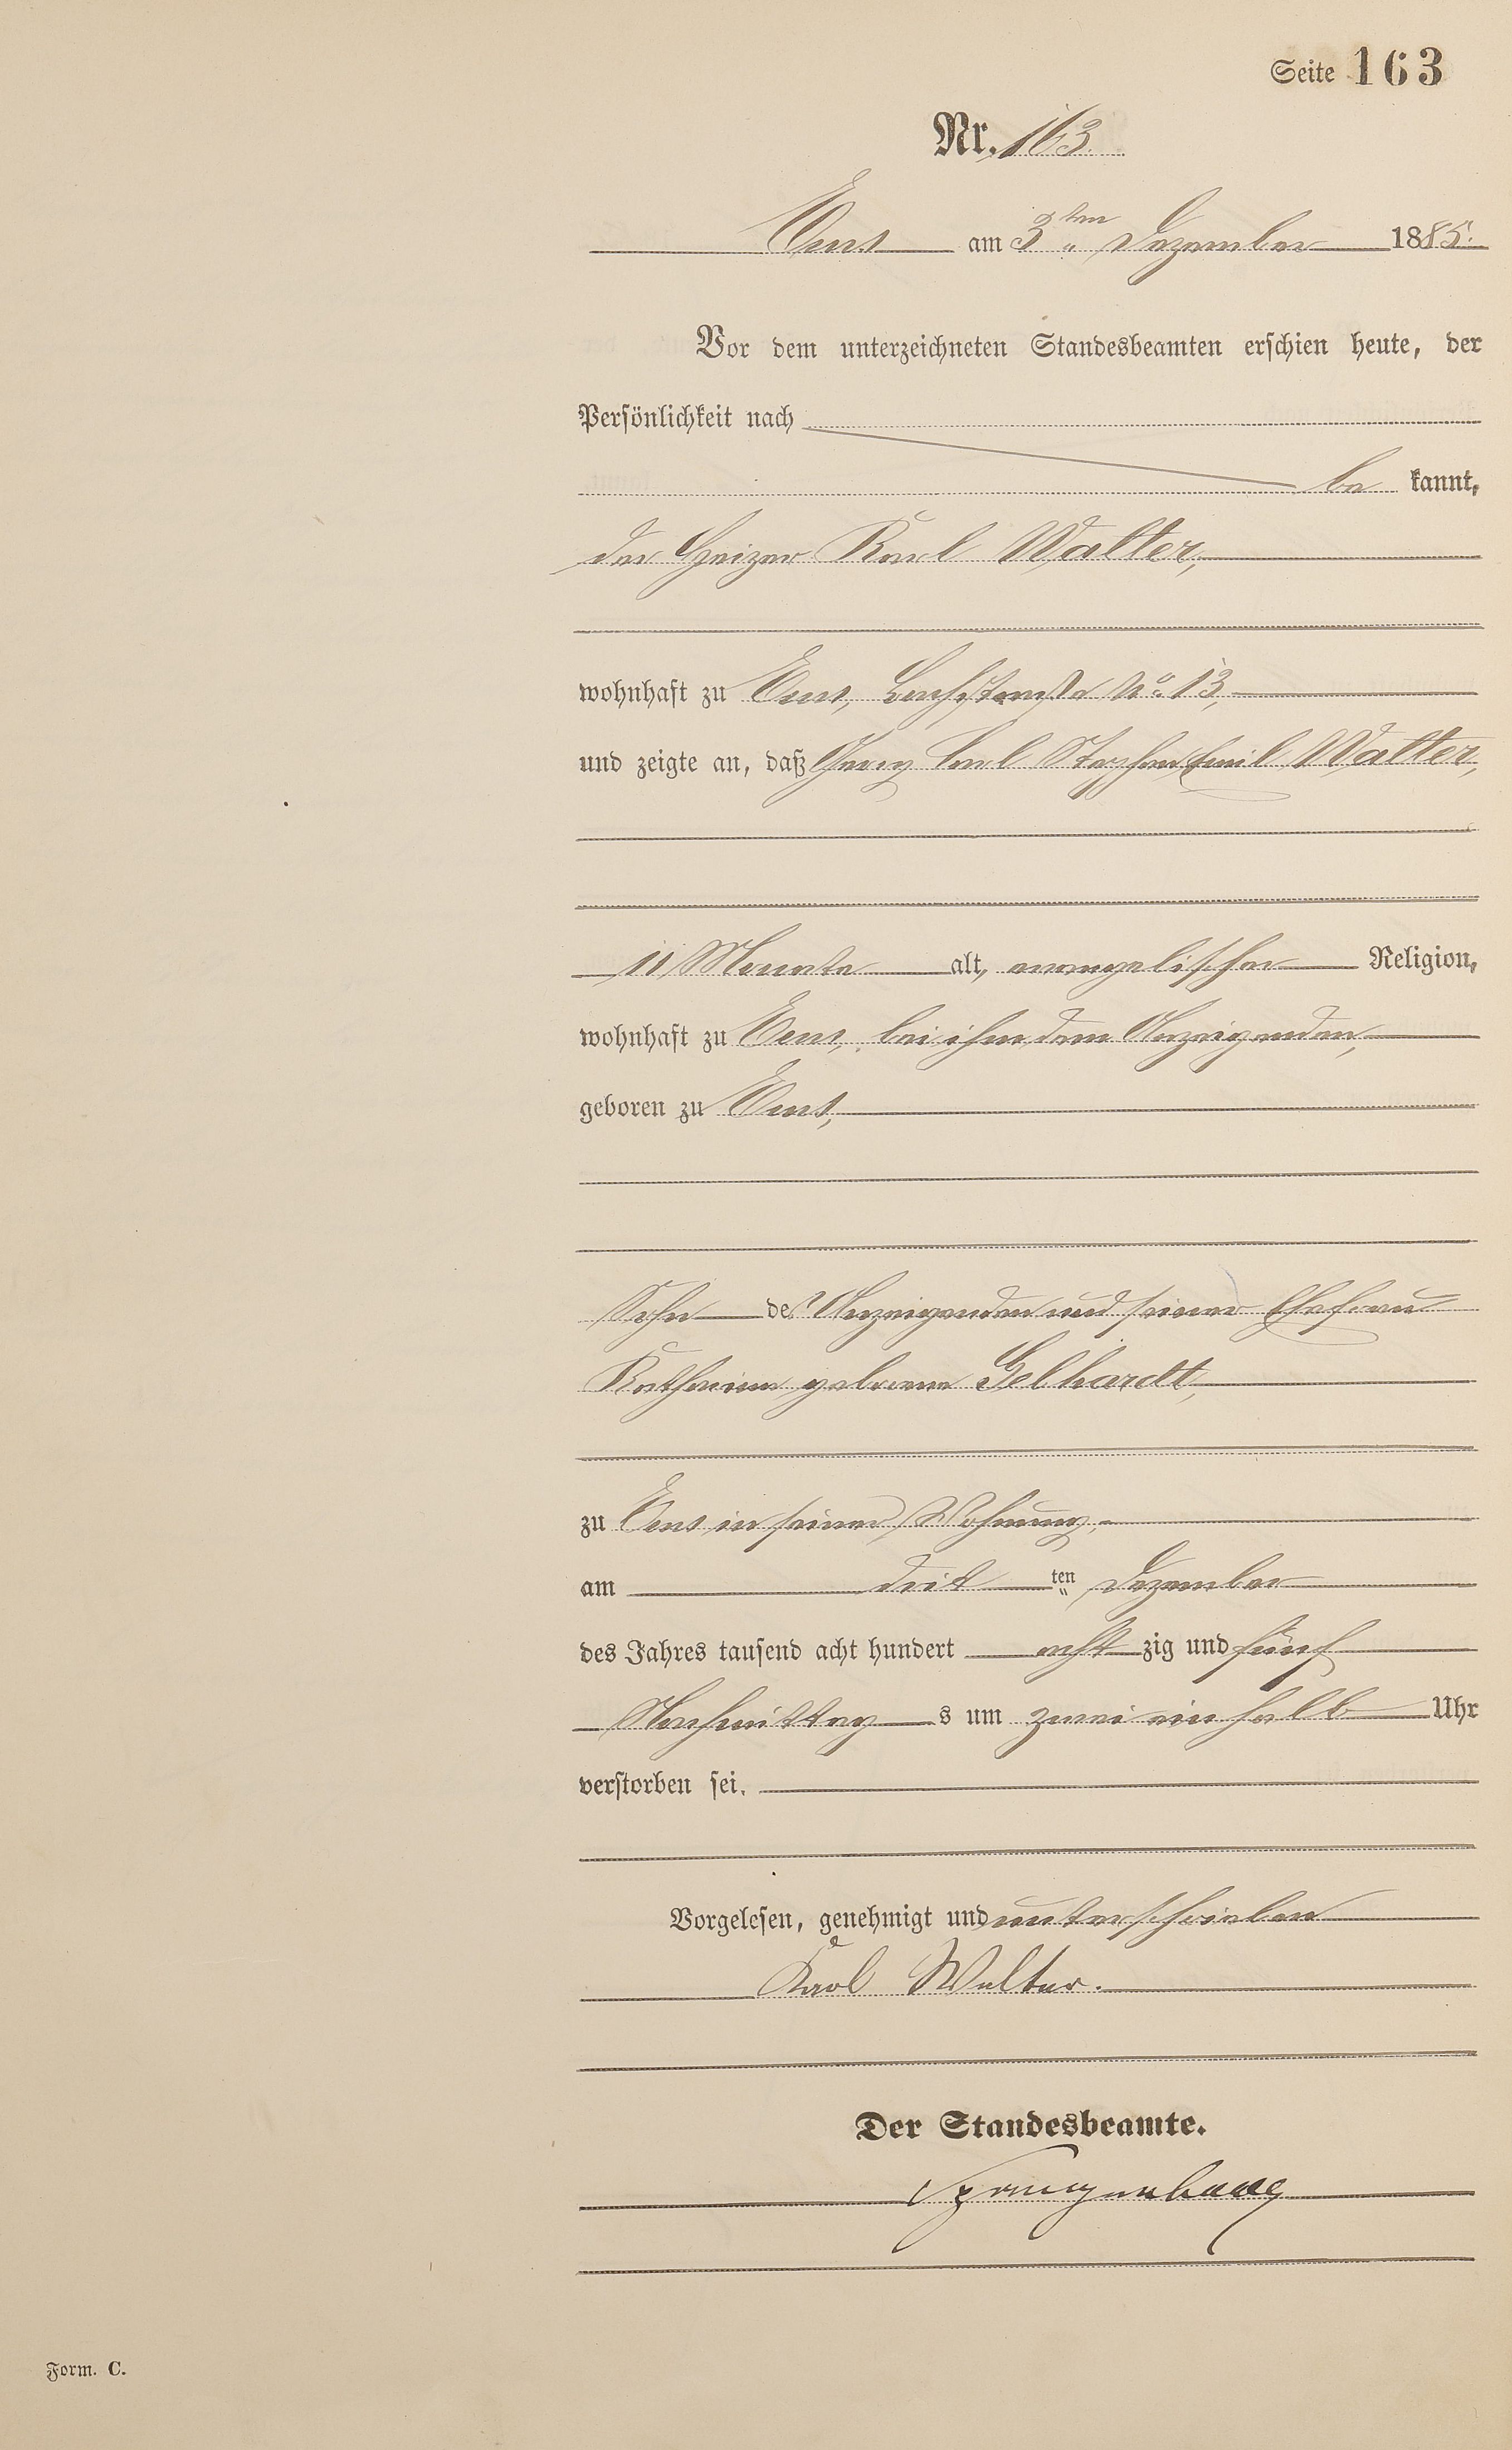 Seite 163
Nr. 163.
Ems am 3ten Dezember 1885.
Vor dem unterzeichneten Standesbeamten erschien heute, der
Persönlichkeit nach
be kannt,
der Heizer Karl Walter,
wohnhaft zu Ems, Bachstraße No. 13,
und zeigte an, daß Georg Carl Stephan Emil Walter,
11 Monate alt, evangelischer Religion,
wohnhaft zu Ems, bei ihm dem Anzeigenden,
geboren zu Ems,
Sohn des Anzeigenden und seiner Ehefrau
Katharina geborene Gelhardt,
zu Ems in seiner Wohnung,
am drit ten Dezember
des Jahres tausend acht hundert acht zig und fünf
Nachmittag s um zwei ein halb Uhr
verstorben sei.
Vorgelesen, genehmigt und unterschrieben
Karl Walter.
Der Standesbeamte.
Spangenberg
Form. C.